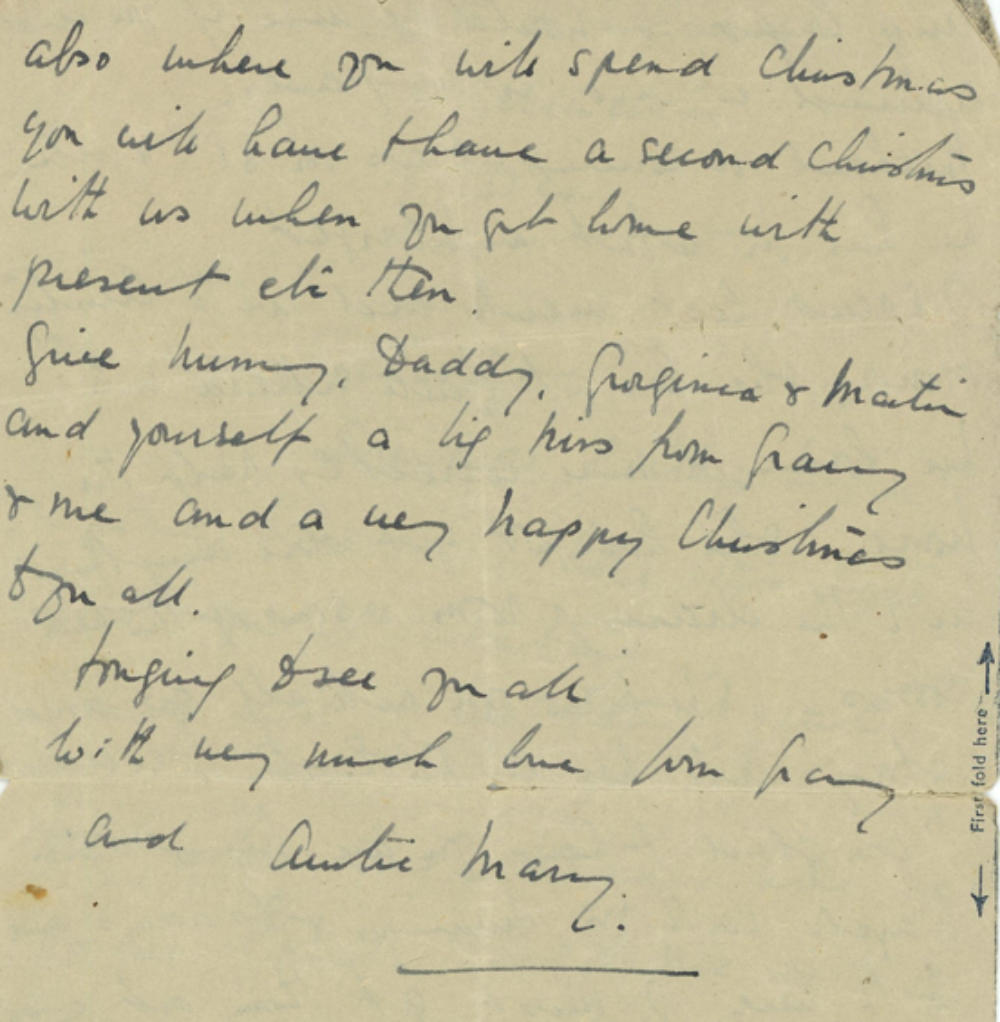 also where you will spend Christmas
you will have to have a second Christmas
with us when you get home with
present etc then
Give Mummy, Daddy, Georginea & Martin
and yourself a big kiss from Granny
& me and a very happy Christmas
to you all.
Longing to see you all
With very much love from Granny
and Auntie Mary.
First fold here